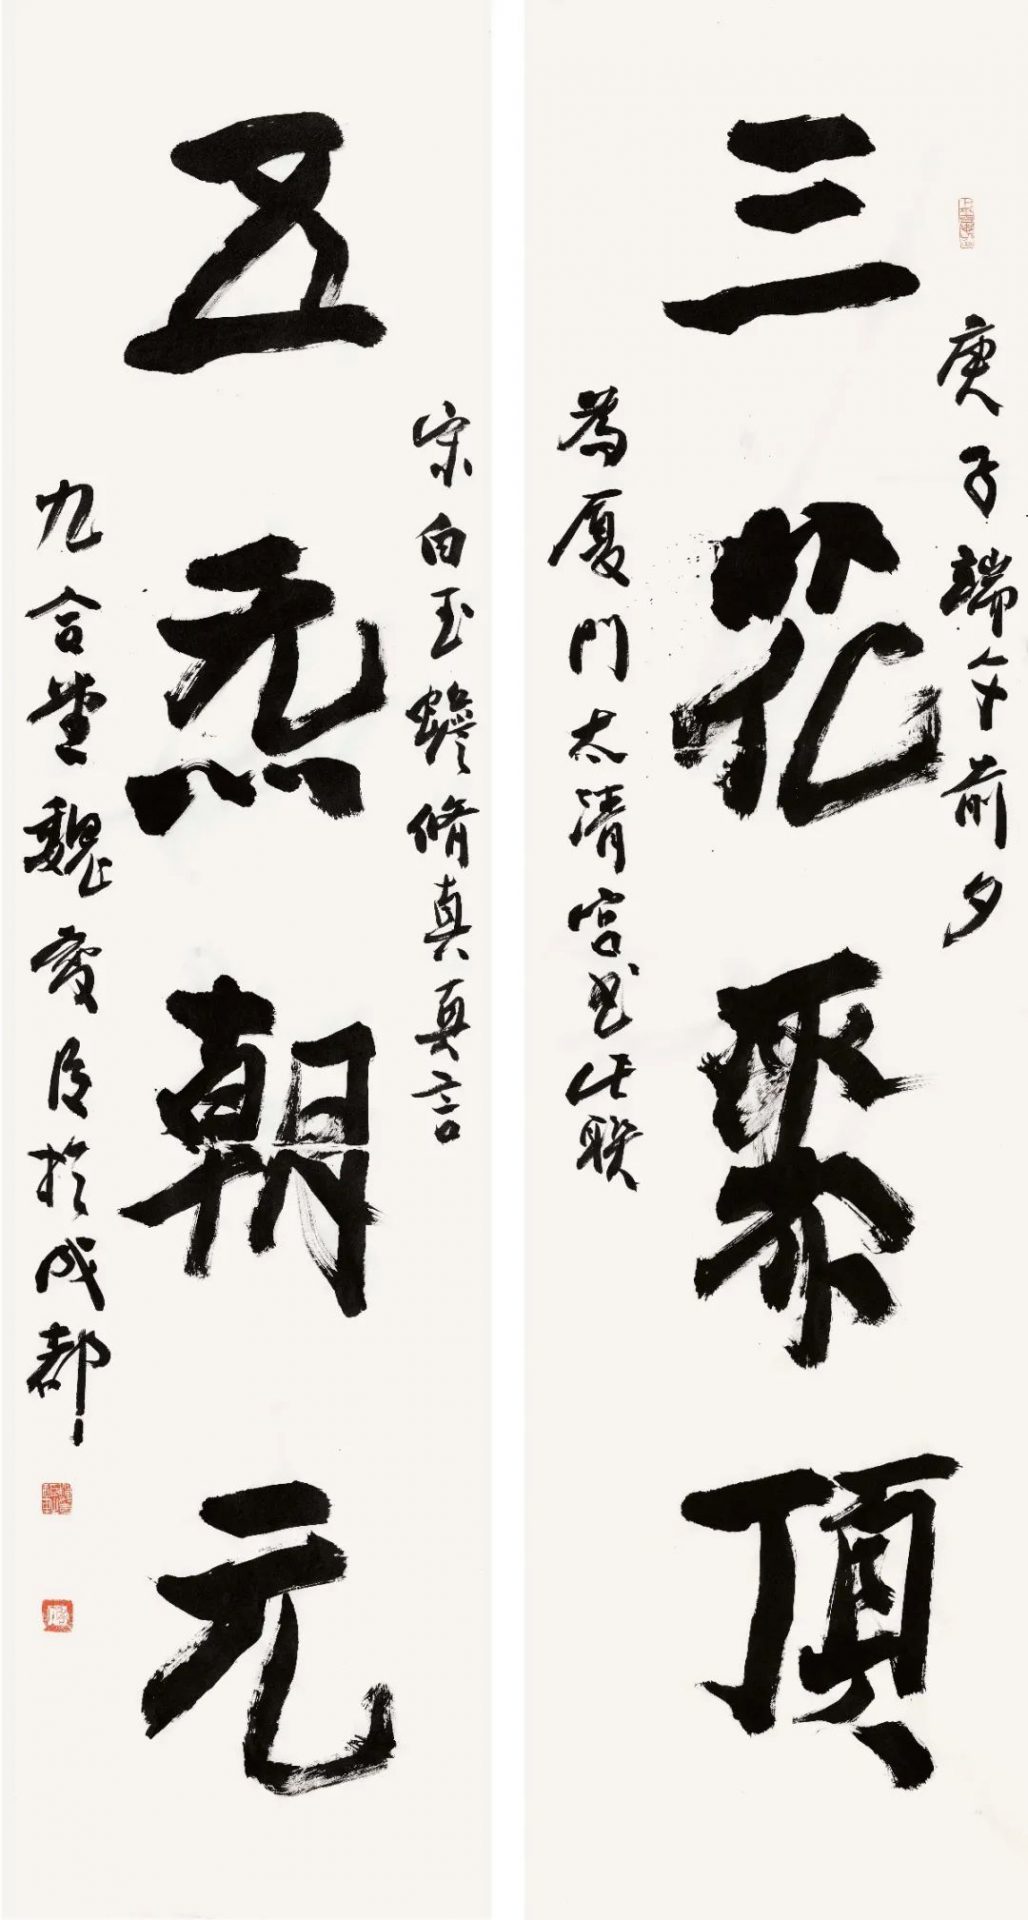 庚子端午前夕
三花聚顶
為厦門太清宮书此联
宋白玉蟾修真真言
五炁朝元
九合堂魏学峰於成都